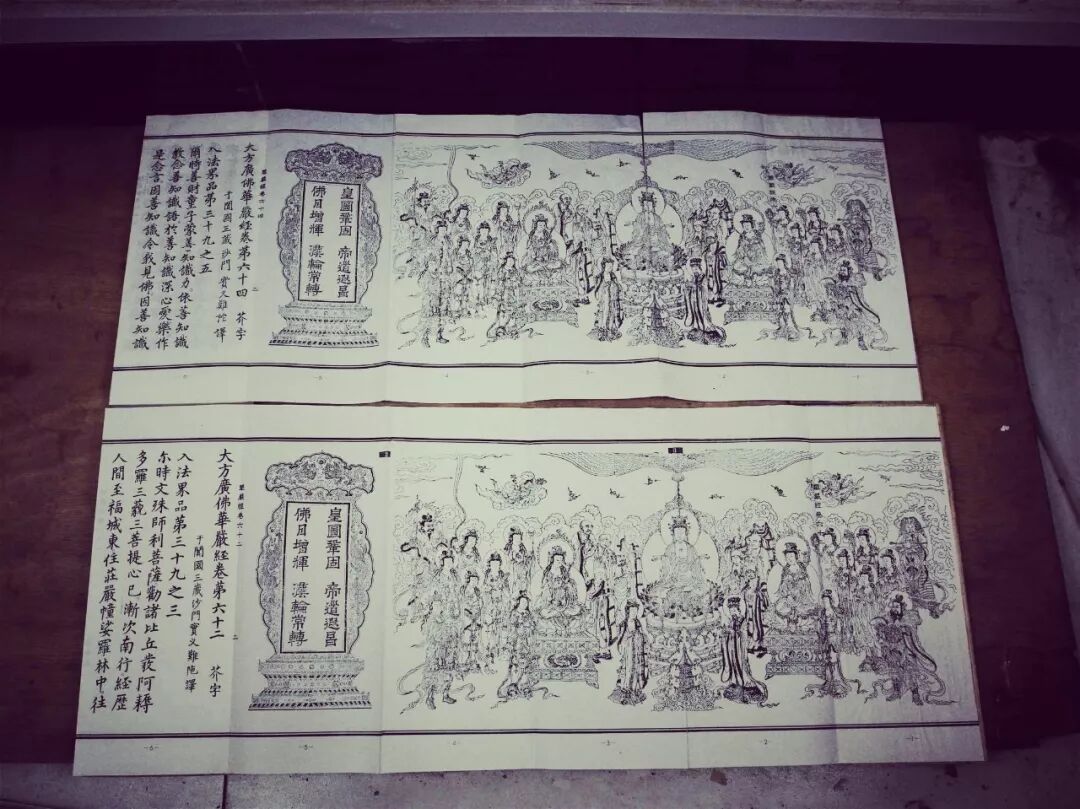 皇圖鞏固 帝道遐昌
佛日增輝 灋輪常轉
華嚴經卷六十四
二
大方廣佛華嚴經卷第六十四 芥字
于闐國三藏沙門實叉難陀譯
入法界品第三十九之五
爾時善財童子蒙善知識力依善知識
教念善知識語於善知識深心愛樂作
是念言因善知識令我見佛因善知識
皇圖鞏固 帝道遐昌
佛日增輝 灋輪常轉
華嚴經卷六十二
二
大方廣佛華嚴經卷第六十二 芥字
于闐國三藏沙門實叉難陁譯
入法界品第三十九之三
尒時文殊師利菩薩勸諸比丘發阿耨
多羅三藐三菩提心已漸次南行經歷
人間至福城東住莊嚴幢娑羅林中往
-1-
-2-
-3-
-4-
-5-
-6-